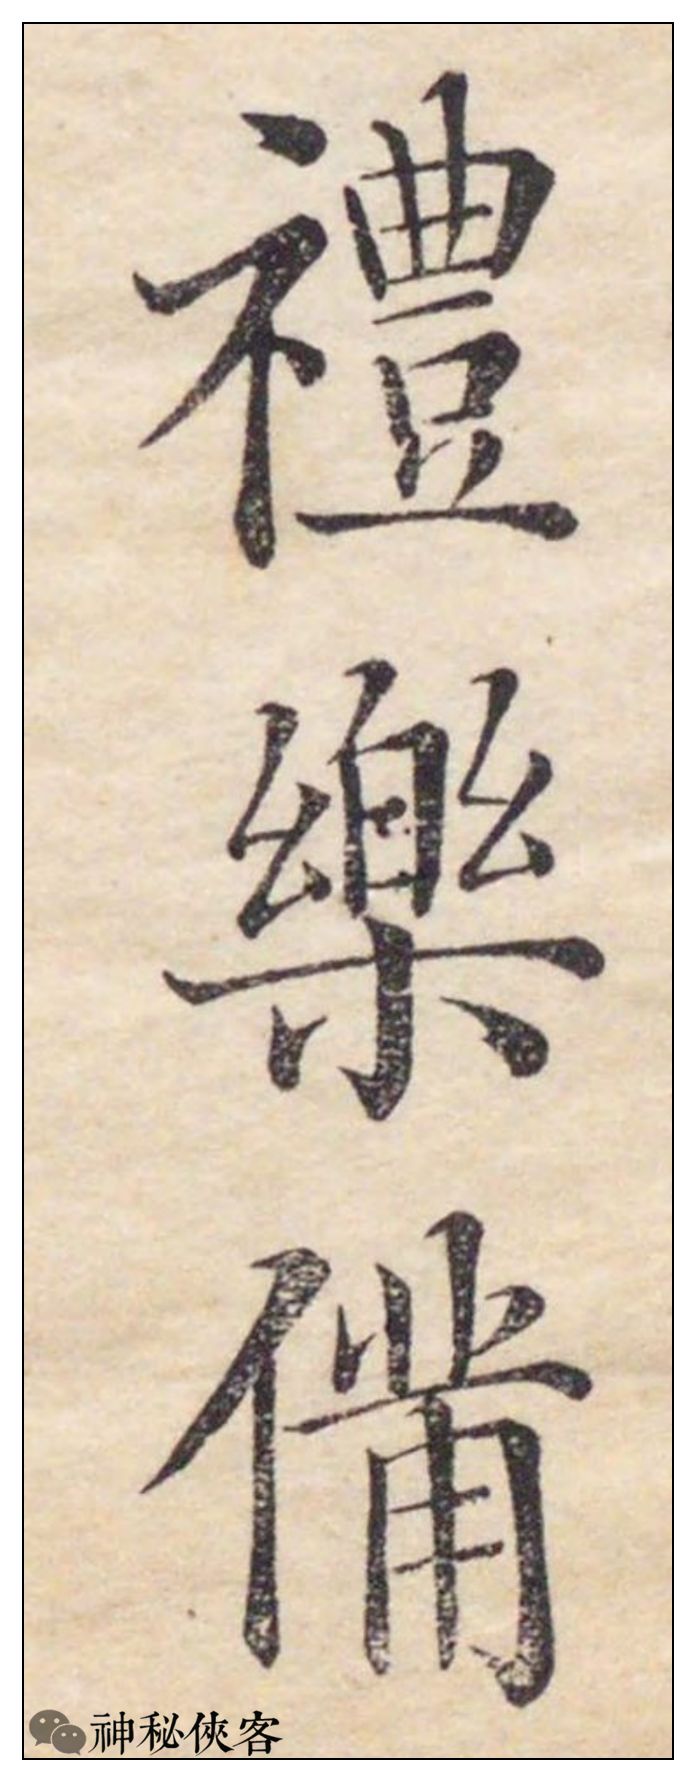 禮樂備
神秘俠客